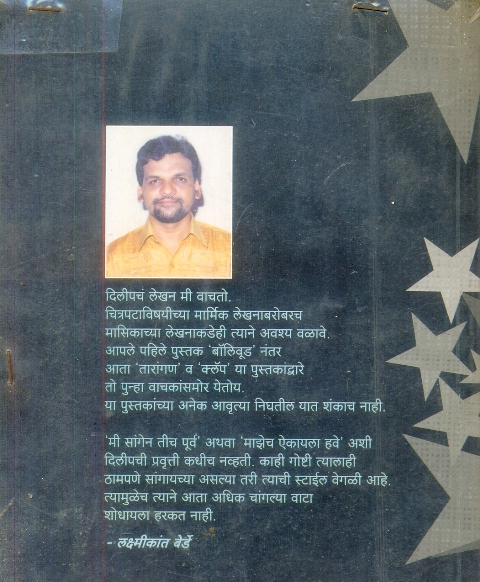 दिलीपचं लेखन मी वाचतो.
चित्रपटाविषयीच्या मार्मिक लेखनाबरोबरच
मासिकाच्या लेखनाकडेही त्याने अवश्य वळावे.
आपले पहिले पुस्तक 'बॉलिवूड' नंतर
आता 'तारांगण' व 'क्लॅप' या पुस्तकाद्वारे
तो पुन्हा वाचकांसमोर येतोय.
या पुस्तकांच्या अनेक आवृत्या निघतील यात शंकाच नाही.
'मी सांगेन तीच पूर्व' अथवा 'माझेच ऐकायला हवे' अशी
दिलीपची प्रवृत्ती कधीच नव्हती. काही गोष्टी त्यालाही
ठामपणे सांगायच्या असल्या तरी त्याची स्टाईल वेगळी आहे.
त्यामुळेच त्याने आता अधिक चांगल्या वाटा
शोधायला हरकत नाही.
- लक्ष्मीकांत बेर्डे